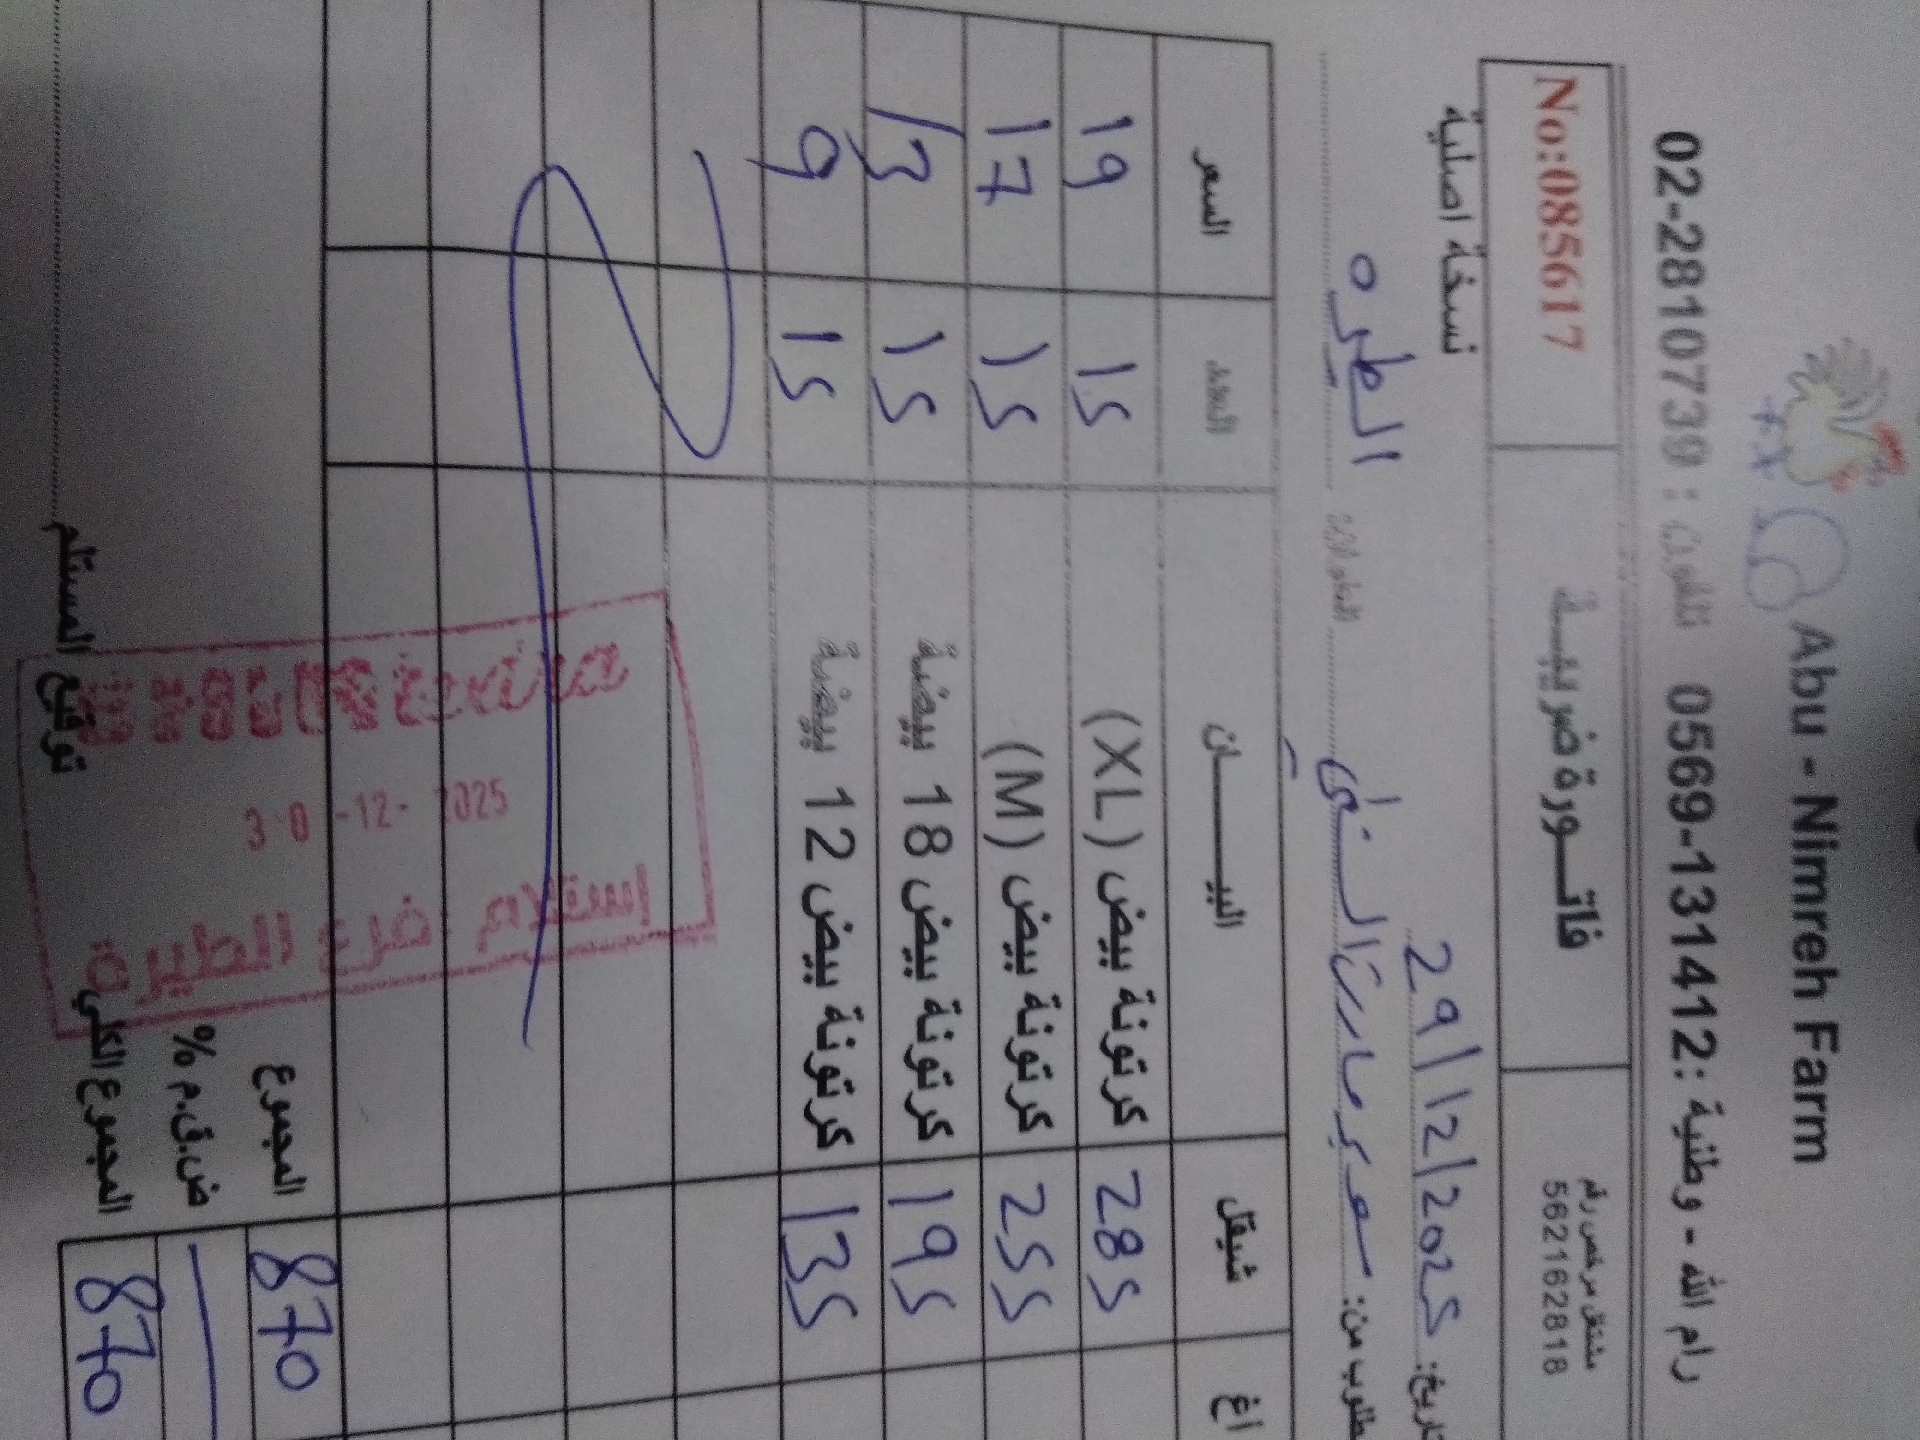 Abu - Nimreh Farm
رام الله - وطنية :0569-131412 تلفون : 02-2810739
مشتغل مرخص رقم
562162818
فاتـورة ضريبيـة
No:085617
نسخة اصلية
تاريخ: 29/12/2025
مطلوب من: سوبر مارت السني المطلوب الطيره
اغ شيقل البيـــــان العدد السعر
285 كرتونة بيض (XL) 15 19
255 كرتونة بيض (M) 15 17
195 كرتونة بيض 18 بيضة 15 13
135 كرتونة بيض 12 بيضة 15 9
30 -12- 2025
استلام فرع الطيرة
المجموع 870
ض.ق.م %
المجموع الكلي 870
توقيع المستلم